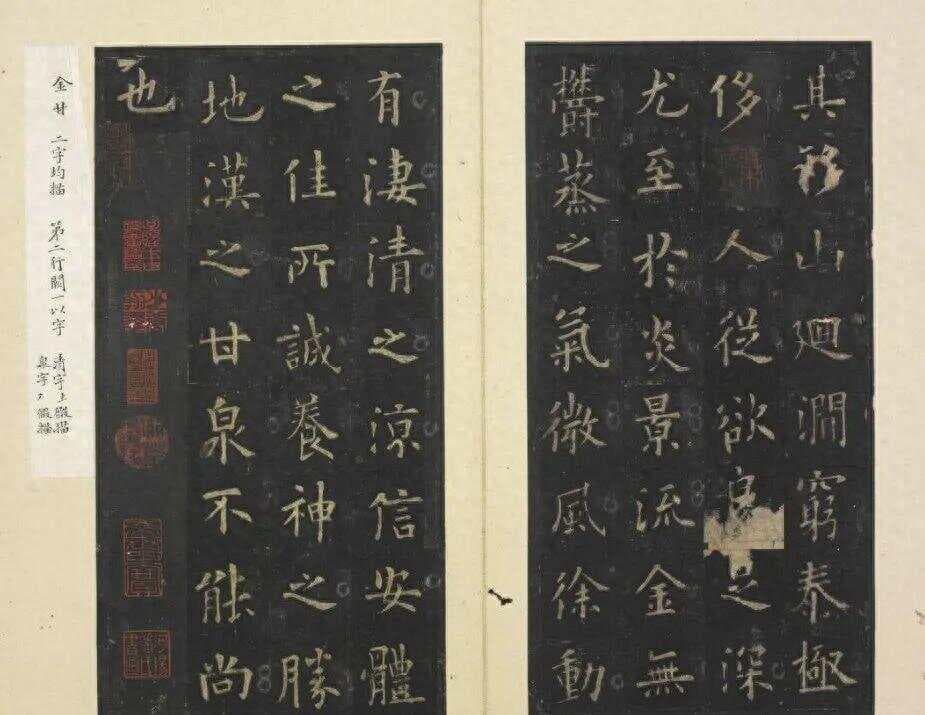 其移山廻澗窮泰極
侈人從欲良足深
尤至於炎景流金無
欝蒸之氣微風徐動
有淒清之涼信安體
之佳所誠養神之勝
地漢之甘泉不能尚
也
金甘二字均描 第二行闕一以字
清字上微描
字微描